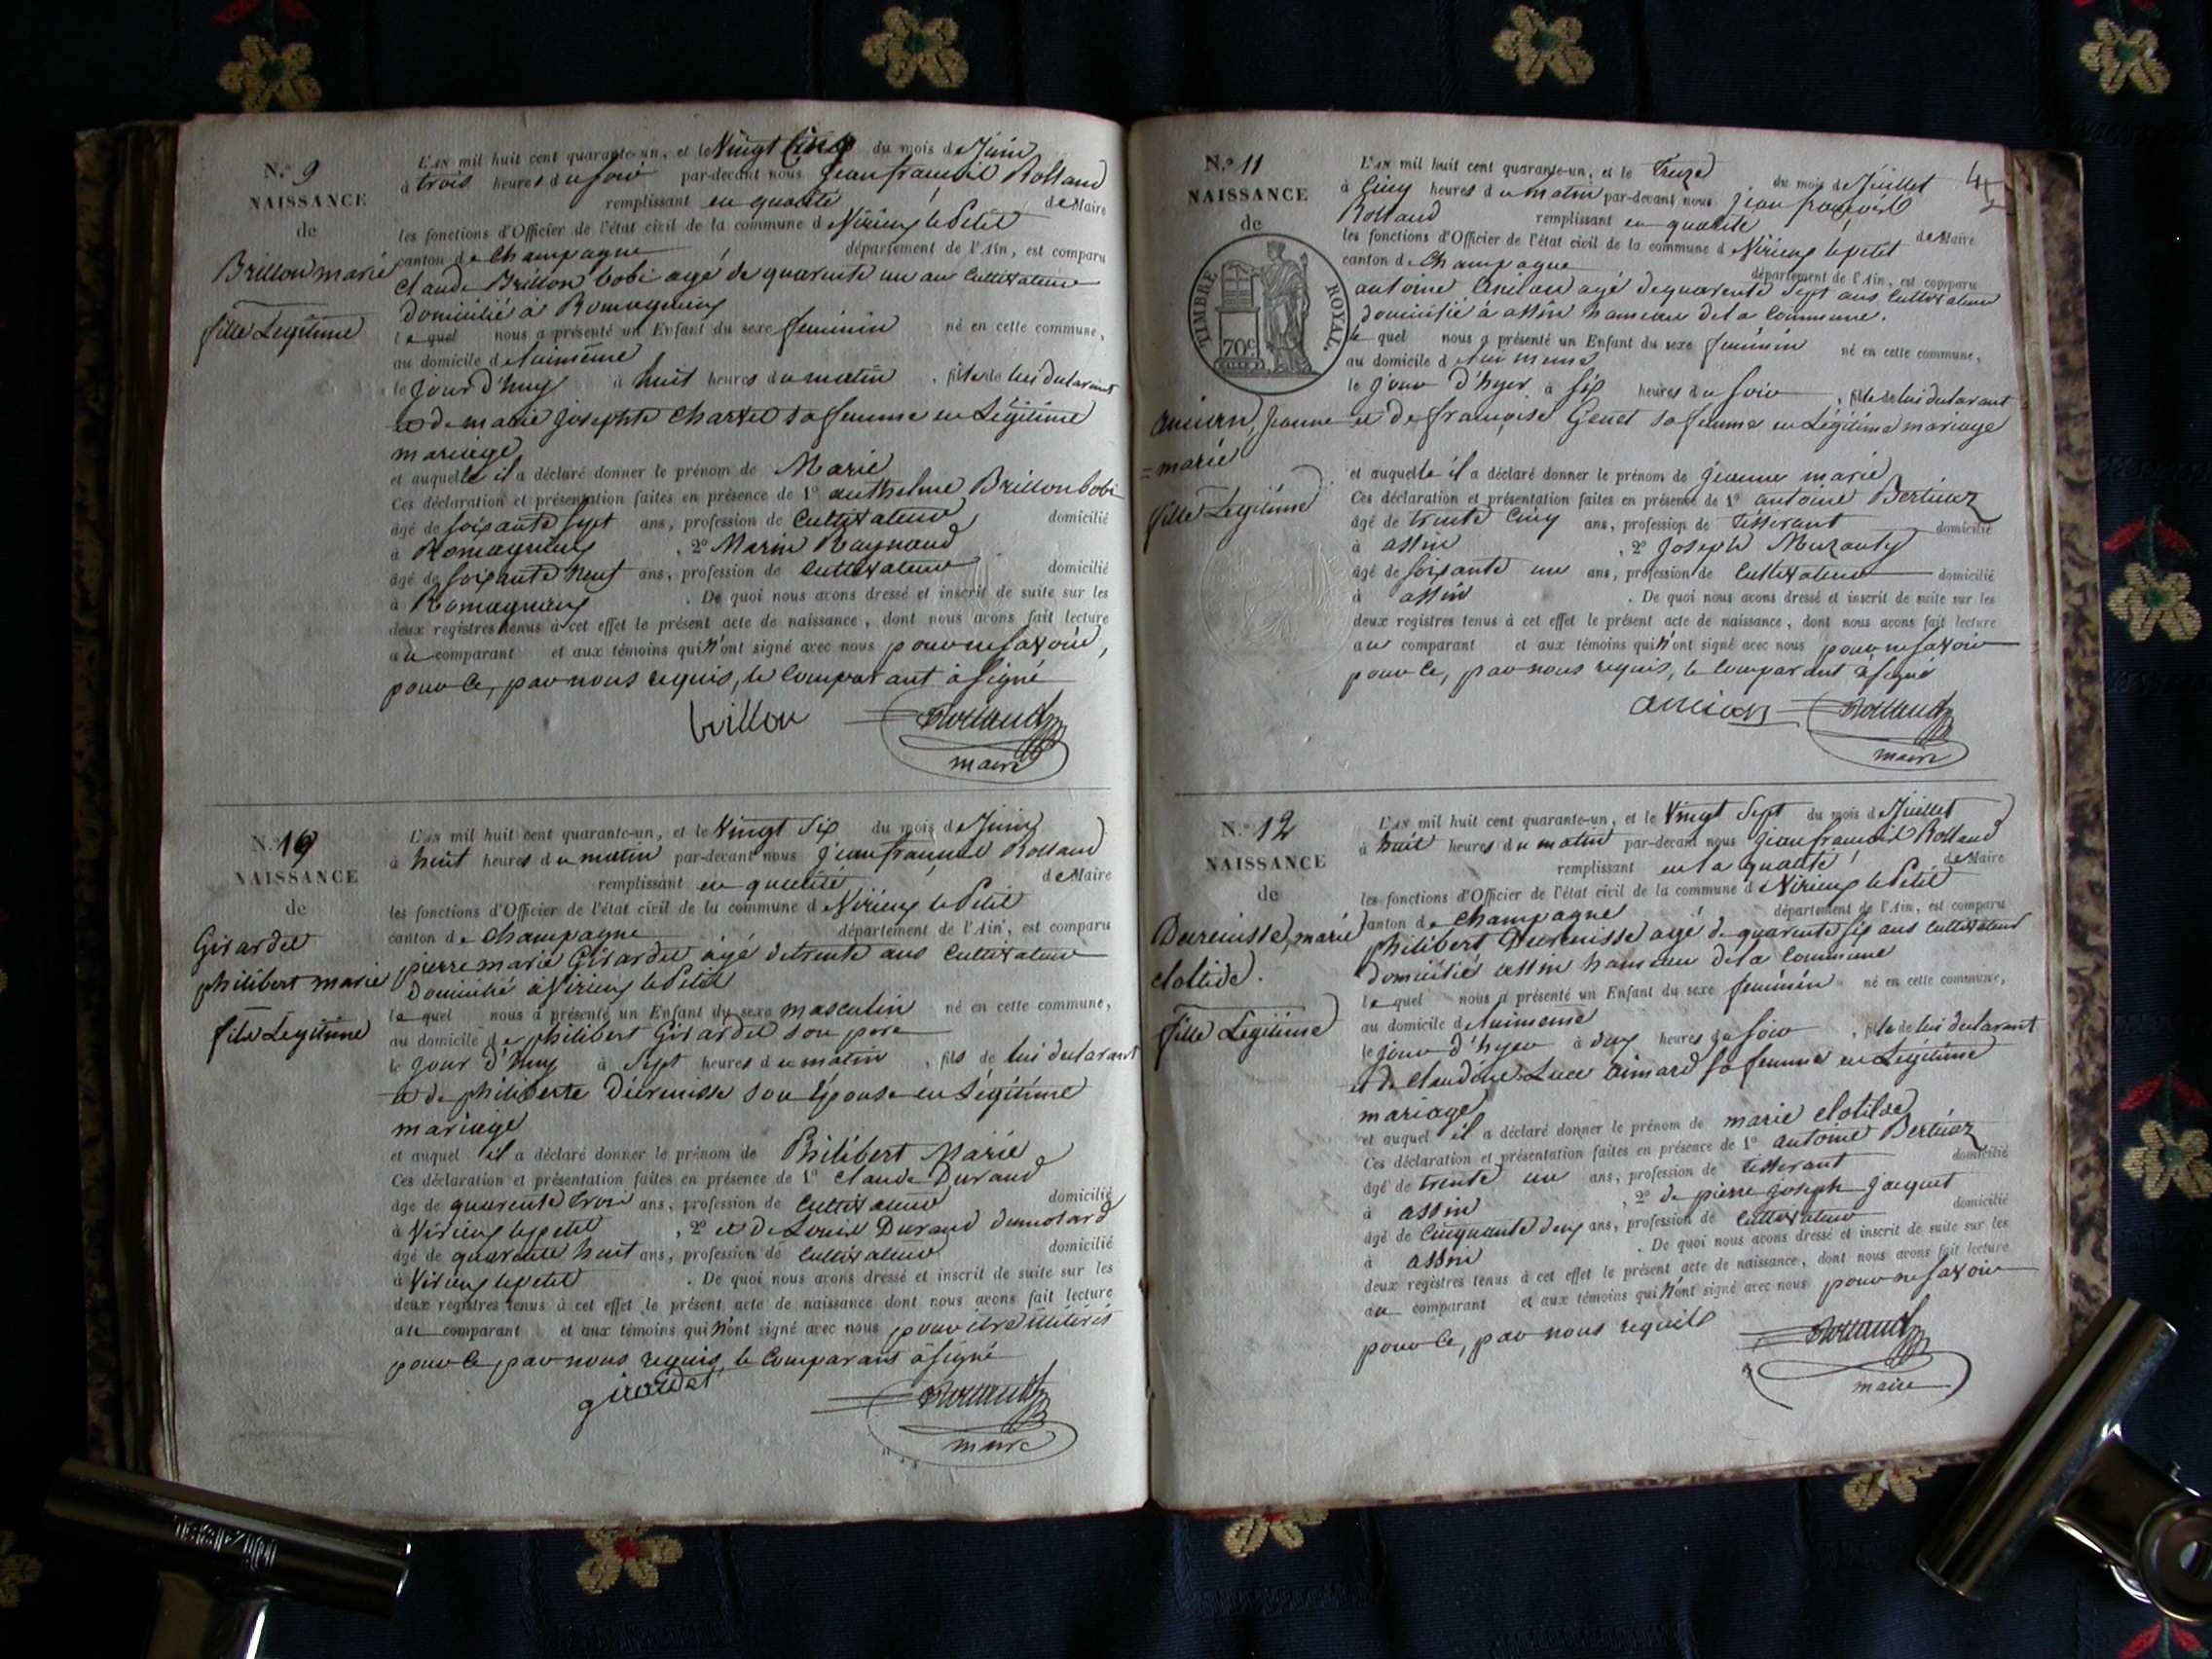 N.º 9
NAISSANCE
de
Brillon marie
fille Légitime
L'AN mil huit cent quarante-un, et le Vingt Cinq du mois de Juin
à trois heures du soir par-devant nous jean françois Rolland
remplissant en qualité de Maire
les fonctions d'Officier de l'état civil de la commune d Virieux le Petit
canton de Champagne département de l'Ain, est comparu
Claude Brillon bobi agé de quarente un an Cultivateur
domicilié à Romagnieux
le quel nous a présenté un Enfant du sexe feminin né en cette commune,
au domicile de luimême
le jour d'huy à huit heures du matin , fille de lui declarant
et de marie josephte Charvet sa femme en Légitime
mariage
et auquelle il a déclaré donner le prénom de Marie
Ces déclaration et présentation faites en présence de 1º anthelme Brillon bobi
âgé de soixante sept ans, profession de Cultivateur domicilié
à Romagnieux , 2º Marin Raynaud
âgé de soixante neuf ans, profession de Cultivateur domicilié
à Romagnieux . De quoi nous avons dressé et inscrit de suite sur les
deux registres tenus à cet effet le présent acte de naissance, dont nous avons fait lecture
au comparant et aux témoins qui n'ont signé avec nous pour ne savoir,
pour ce, par nous requis, le Comparant à signé
brillon Rolland
maire
N.º 10
NAISSANCE
de
Girardet
philibert marie
fils Légitime
L'AN mil huit cent quarante-un, et le Vingt six du mois de Juin
à huit heures du matin par-devant nous jean françois Rolland
remplissant en qualité de Maire
les fonctions d'Officier de l'état civil de la commune d Virieux le Petit
canton de Champagne département de l'Ain, est comparu
pierre marie Girardet agé de trente ans Cultivateur
domicilié à Virieux le Petit
le quel nous a présenté un Enfant du sexe masculin né en cette commune,
au domicile de philibert Girardet son pere
le jour d'huy à sept heures du matin , fils de lui declarant
et de philiberte Dévenisse son Epouse en Légitime
mariage
et auquel il a déclaré donner le prénom de Philibert Marie
Ces déclaration et présentation faites en présence de 1º Claude Durand
âgé de quarente trois ans, profession de Cultivateur domicilié
à Virieux le petit , 2º et de Louis Durand dumolard
âgé de quarente huit ans, profession de Cultivateur domicilié
à Virieux le petit . De quoi nous avons dressé et inscrit de suite sur les
deux registres tenus à cet effet le présent acte de naissance dont nous avons fait lecture
au comparant et aux témoins qui n'ont signé avec nous pour être illitérés
pour ce par nous requis, le Comparans à signé
girardet Rolland
maire
N.º 11
NAISSANCE
de
TIMBRE ROYAL.
70c
Jeanne
= marie
fille Légitime
L'AN mil huit cent quarante-un, et le Treize du mois de Juillet
à Cinq heures du matin par-devant nous jean françois
Rolland remplissant en qualité de Maire
les fonctions d'Officier de l'état civil de la commune d Virieux le petit
canton de Champagne département de l'Ain, est comparu
antoine Ancian agé de quarente sept ans Cultivateur
domicilié à assin hameau de la Commune.
le quel nous a présenté un Enfant du sexe feminin né en cette commune,
au domicile de lui meme
le jour d'hyer à six heures du soir , fille de lui declarant
et de françoise Genet sa femme en Légitime mariage
et auquelle il a déclaré donner le prénom de jeanne marie
Ces déclaration et présentation faites en présence de 1º antoine Bertinaz
âgé de trente Cinq ans, profession de tisserant domicilié
à assin , 2º joseph
âgé de soixante un ans, profession de Cultivateur domicilié
à assin . De quoi nous avons dressé et inscrit de suite sur les
deux registres tenus à cet effet le présent acte de naissance, dont nous avons fait lecture
au comparant et aux témoins qui n'ont signé avec nous pour ne savoir
pour ce, par nous requis, le Comparant à signé
ancian Rolland
maire
N.º 12
NAISSANCE
de
marie
clotide.
fille Légitime
L'AN mil huit cent quarante-un, et le Vingt Sept du mois de Juillet
à huit heures du matin par-devant nous jean françois Rolland
remplissant en la qualité de Maire
les fonctions d'Officier de l'état civil de la commune d Virieux le Petit
canton de Champagne département de l'Ain, est comparu
philibert agé de quarente six ans Cultivateur
domicilié assin hameau de la Commune
le quel nous a présenté un Enfant du sexe feminin né en cette commune,
au domicile de luimeme
le jour d'hyer à deux heures du soir , fille de lui declarant
et de Claudine Luce aimard sa femme en Légitime
mariage
et auquel il a déclaré donner le prénom de marie clotilde
Ces déclaration et présentation faites en présence de 1º antoine Bertinaz
âgé de trente un ans, profession de tisserant domicilié
à assin , 2º de pierre joseph jacquet
âgé de Cinquante deux ans, profession de Cultivateur domicilié
à assin . De quoi nous avons dressé et inscrit de suite sur les
deux registres tenus à cet effet le présent acte de naissance, dont nous avons fait lecture
au comparant et aux témoins qui n'ont signé avec nous pour ne savoir
pour ce, par nous requis
Rolland
maire